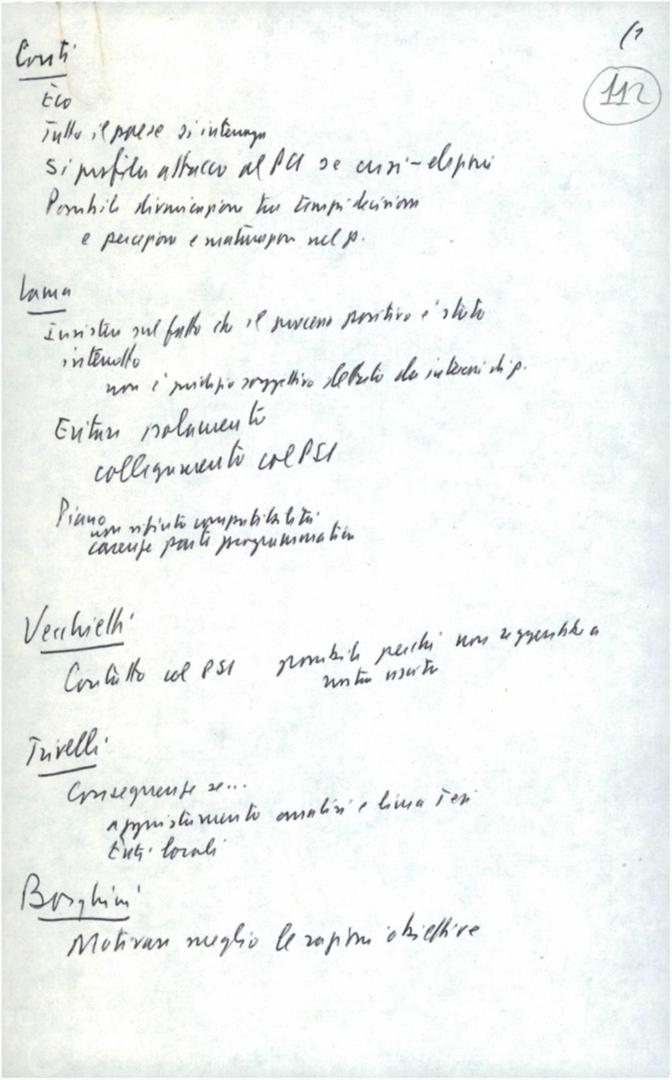 (1
112
Conti
Eco
Tutto il paese si interroga
Si profila attacco al PCI se crisi-elezioni
Possibile divaricazione tra tempi decisioni
e percezione e maturazione nel p.
Lama
Insistere sul fatto che il processo positivo è stato
interrotto
non è giudizio soggettivo dettato da interessi di p.
Evitare isolamento
collegamento col PSI
Piano
non rifiuto compatibilità
carenze parti programmatica
Vecchietti
Contatto col PSI possibile perché non
nostra uscita
Trivelli
Conseguenze se...
aggiustamento analisi e linea Tesi
Enti locali
Borghini
Motivare meglio le ragioni obiettive